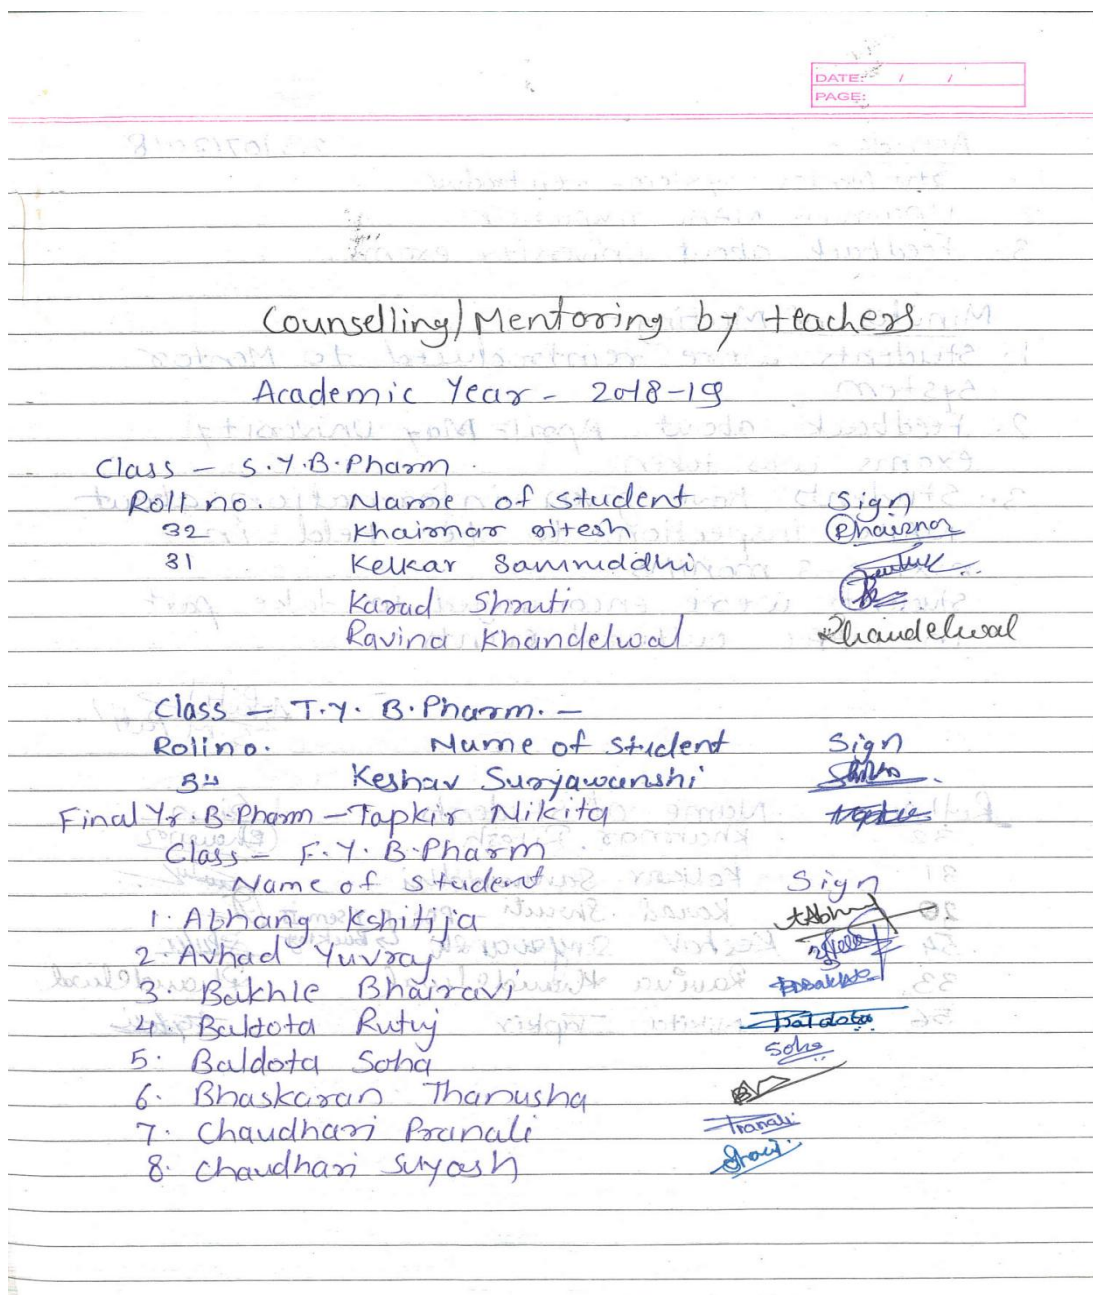 DATE: / /
PAGE:
Counselling/Mentoring by teachers
Academic Year - 2018-19
Class - S.Y.B.Pharm.
Roll no. Name of student Sign
32 Khairnar ritesh Khairnar
31 Kelkar Samruddhi
Karad Shruti
Ravina Khandelwal Khandelwal
Class - T.Y. B.Pharm. -
Roll no. Name of student Sign
34 Keshav Suryawanshi
Final Yr. B.Pharm - Tapkir Nikita Tapkir
Class - F.Y. B.Pharm
Name of student Sign
1. Abhang Kshitija
2. Avhad Yuvraj
3. Bakhle Bhairavi
4. Baldota Rutuj Baldota
5. Baldota Soha Soha
6. Bhaskaran Thanusha
7. Chaudhari Pranali Pranali
8. Chaudhari Suyash